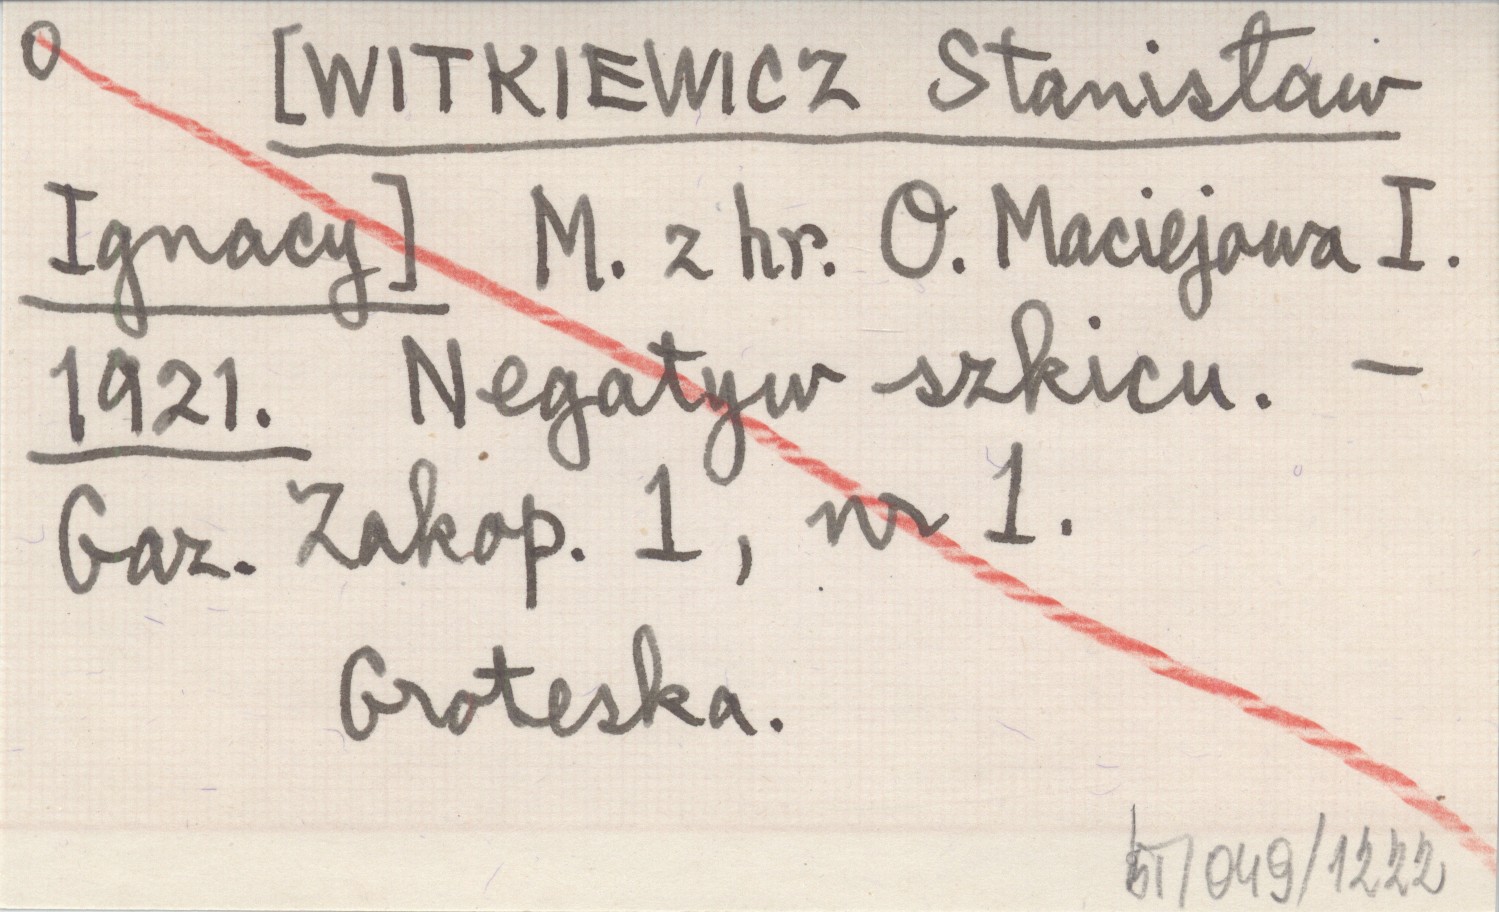 O [WITKIEWICZ Stanisław
Ignacy] M. z hr. O. Maciejowa I.
1921. Negatyw szkicu. –
Gaz. Zakop. 1, nr 1.
Groteska.
/049/1222